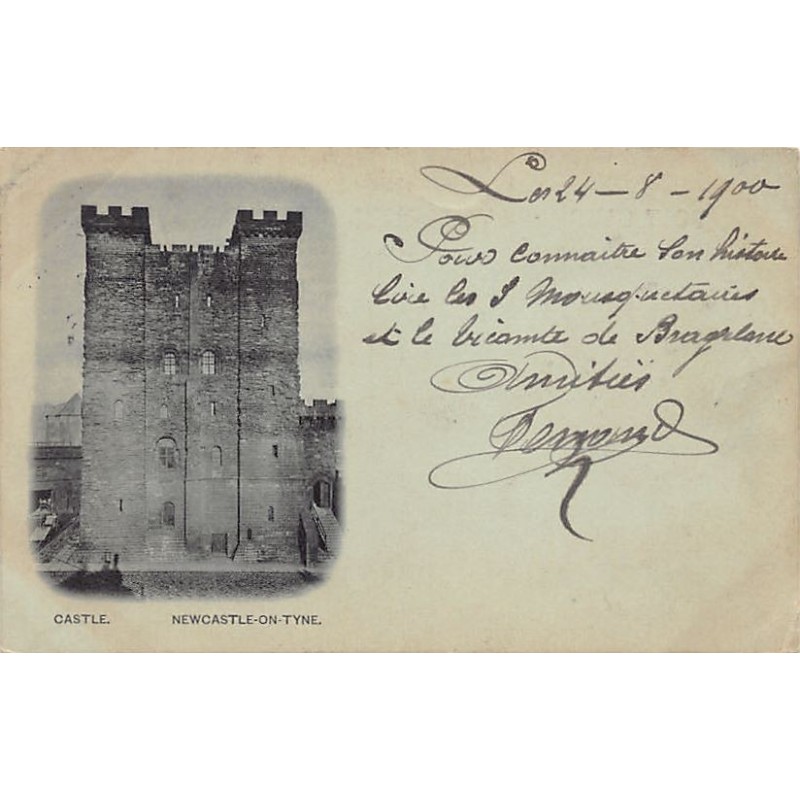 Les 24 - 8 - 1900
Pour connaitre son histoire
lire les 3 Mousquetaires
et le Vicomte de Bragelone
Amitiés
CASTLE. NEWCASTLE-ON-TYNE.